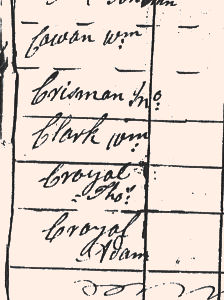 Cowan Wm
Crisman Jno.
Clark Wm
Croyal
Thos.
Croyal
Adam